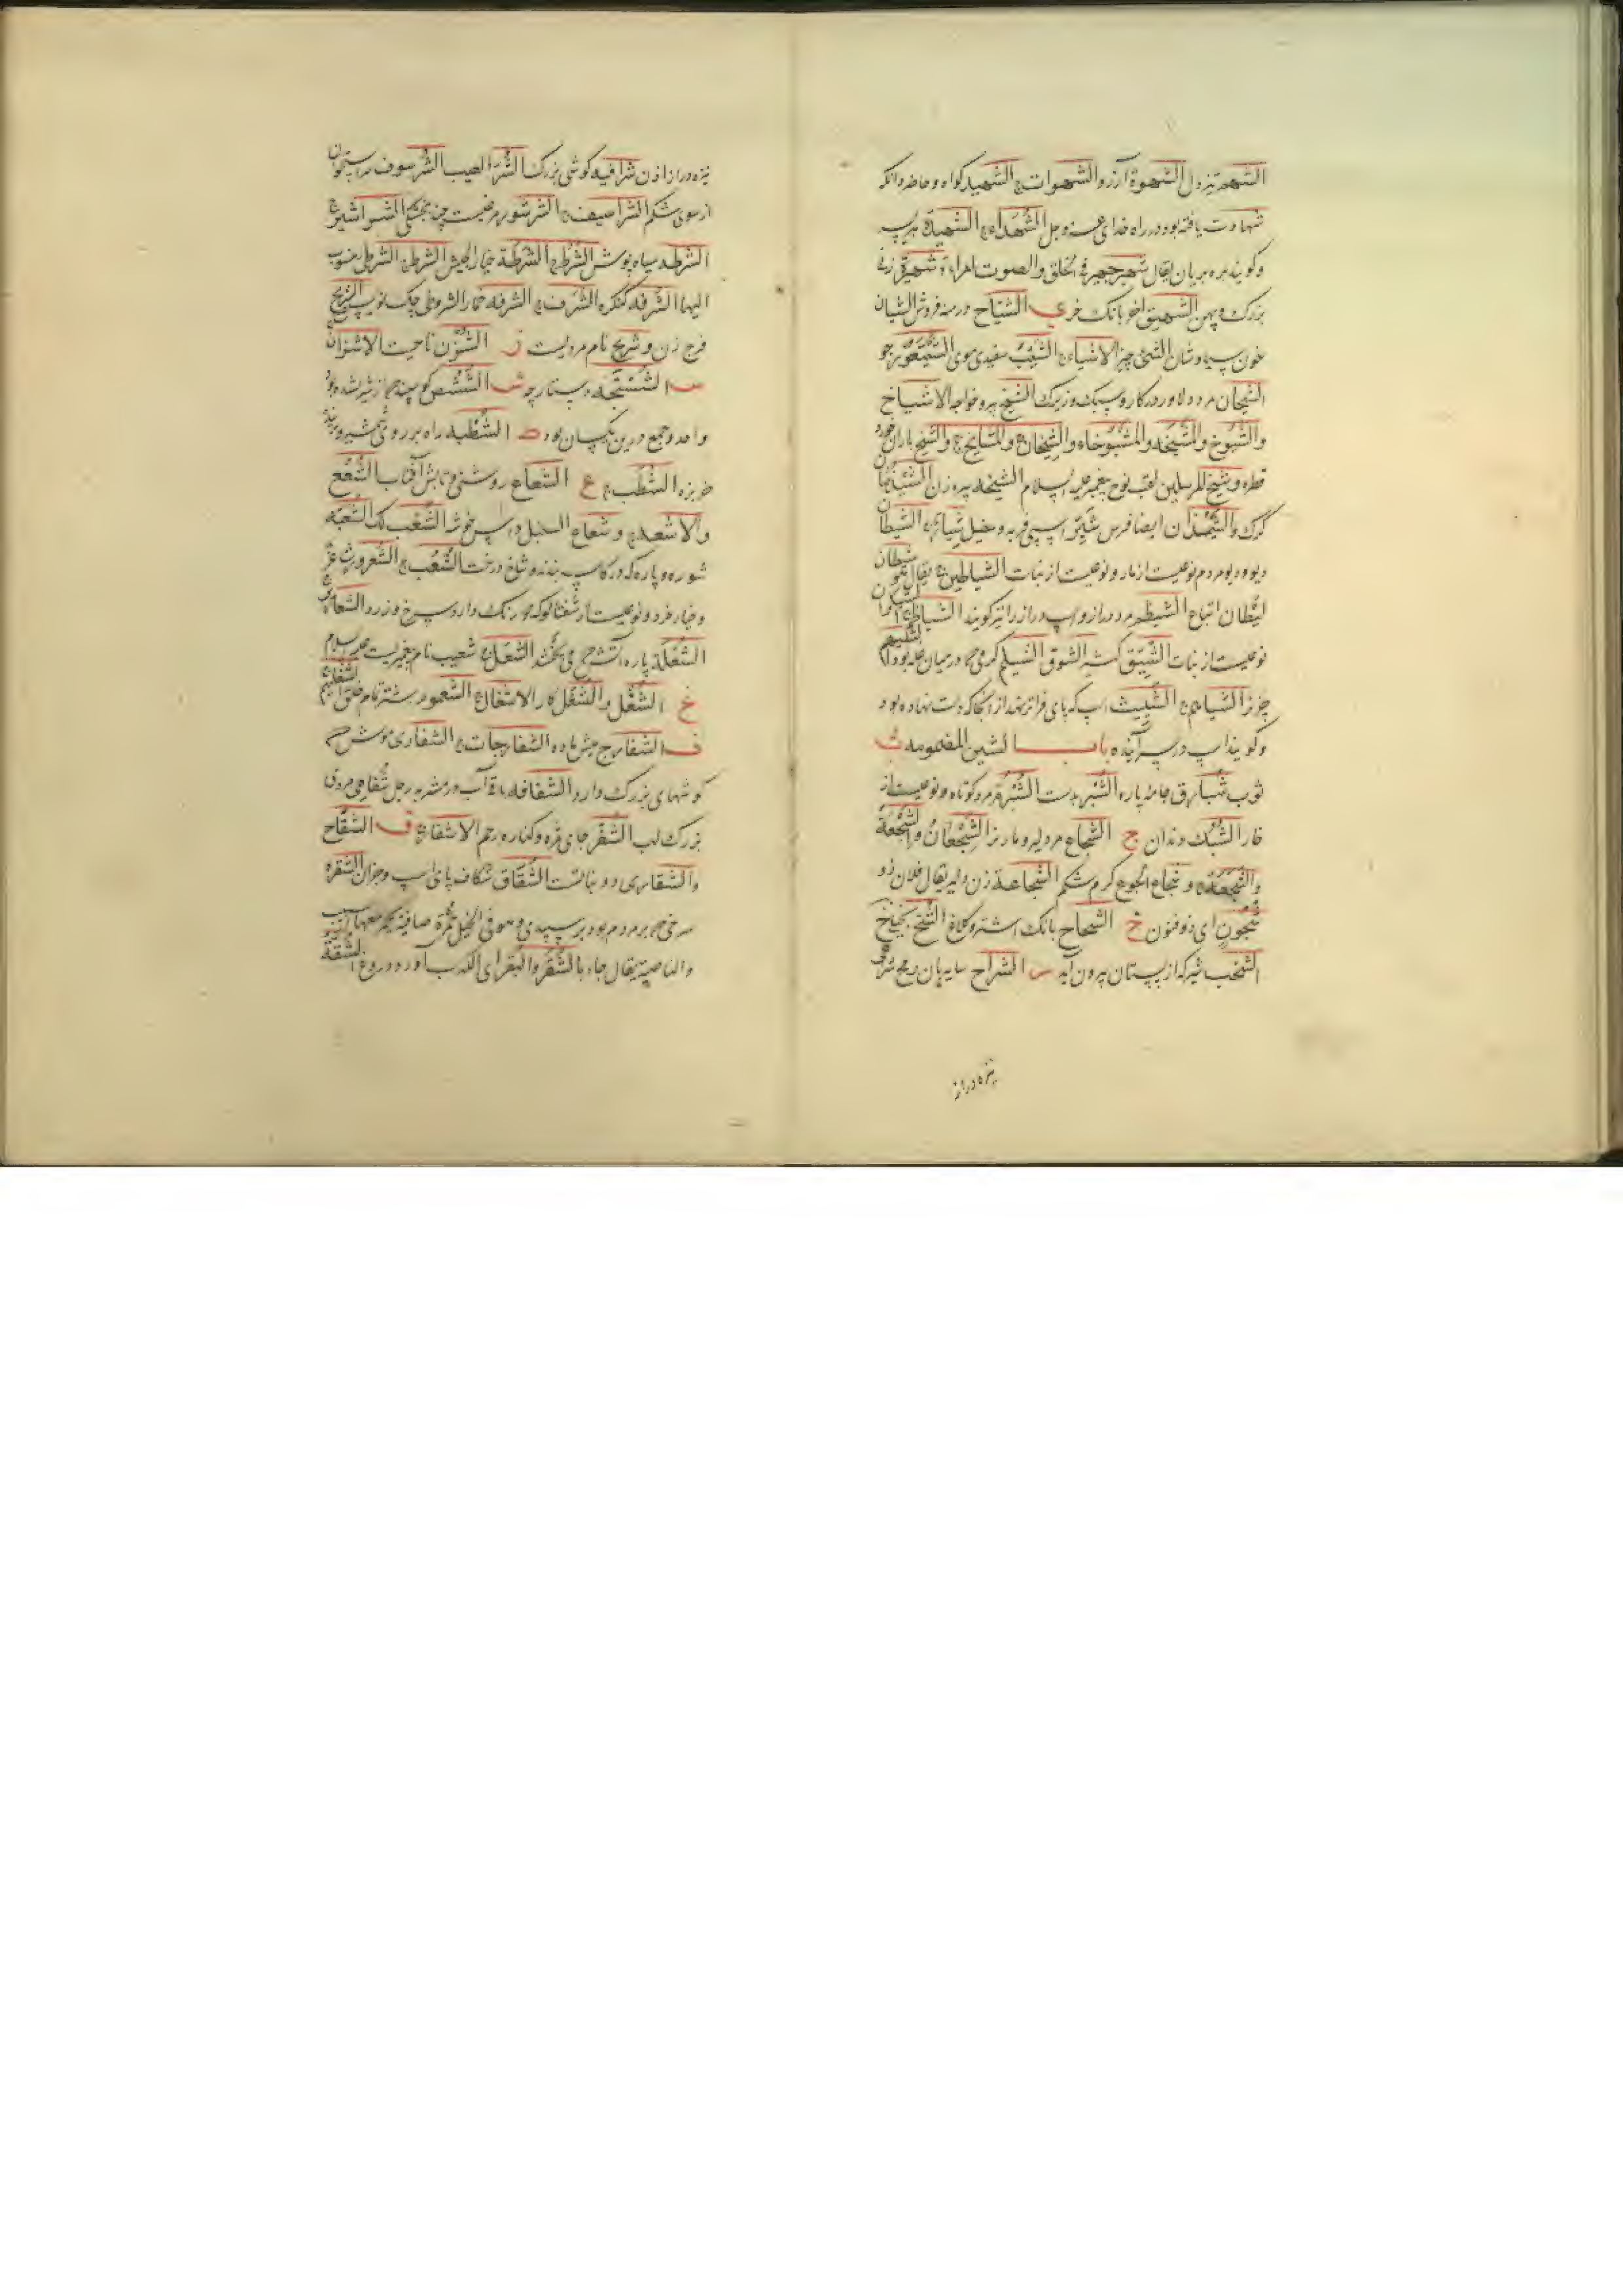 الشهم تیز دل الشهوة آرزو الشهوات ج الشهید کواه و حاضر و انکه
شهادت یافته بود در راه خدای عز و جل الشهداء ج الشهیدة
و کویند بره بریان یقال شهیر جهیر فی الخلق و الصوت امراة شهیرة زنی
بزرک و پهن الشهیق آخر بانک خر ی الشیاح درمنه فروش الشیان
خون سیاوشان الشیء چیز الاشیاء ج الشیب سفیدی موی الشیتعور جو
الشیحان مرد دلاور در کار و سبک و زیرک الشیخ پیر و خواجه الاشیاخ
و الشیوخ و الشیخة و المشیوخاء و الشیخان و المشایخ ج و الشیخ باران خورد
قطره و شیخ المرسلین لقب نوح پیغمبر علیه السلام الشیخة پیره زن
کرک و ایضا فرس شیّر اسپی فربه و خیل شیار ج الشیطان
دیو و دیو مردم نوعیست از مار و نوعیست از نبات الشیاطین ج یقال شیطان
لیطان اتباع الشیظم مرد دراز و اسپ دراز را نیز کویند
نوعیست از نبات الشیّق الشوق الشیلم
الشیاهم ج الشئیت اسپ که پای فراتر نهد از آنجا که دست نهاده بود
و کویند اسپ در سر آینده باب الشین المضمومه ب
ثوب شبارق جامه پاره الشبر بدست الشبرم مرد کوتاه و نوعیست از
خار الشبک دندان ج الشجاع مرد دلیر و مار نر الشجعان و الشجعة
و الشجعة ج و شجاع الجوع کرم شکم الشجاعة زن دلیر یقال فلان ذو
شجون ای ذو فنون ح الشحاح بانک اشتر و کلاغ
الشخب شیر که از پستان بیرون آید ر الشراح سایه بان رمح
نیزه دراز
نیزه دراز اذن شرافیة کوشی بزرک الشر العیب الشرسوف سر استخوان
از سوی شکم الشراسیف ج الشرشور مرغیست چند بنجشکی الشراشیر ج
الشرطة سیاه پوش الشرط ج الشرطة خیار الجیش الشرط ج الشرطی منسوب
الیها الشرفة کنکره الشرف ج الشرفة خیار الشروطی چک نویس الشریح
فرج زن و شریح نام مردیست ز الشزن ناحیت الاشزان ج
س الشستجه دستارچه ش الششص کوسپند از شیر شده
واحد و جمع درین یکسان بود ط الشطبة راه بر روی شمشیر و برید
خربزه الشطب ج ع الشعاع روشنی و تابش آفتاب الشعع
و الاشعة ج و شعاع السنبل داس خوشه الشعب کمه الشعبة
شوره و پاره که در کاسه بندند و شاخ درخت الشعب ج الشعرور
و خیار خرد و نوعیست از شفتالو که دو رنک دارد سرخ و زرد
الشعلة پاره آتش الشعل ج شعیب نام پیغمبریست علیه السلام
غ الشغل و الشغل کار الاشغال ج الشغموم شتر تمام خلق
ف الشفارج میش پاره الشفارجات ج الشفاری موش که
کوشهای بزرک دارد الشفافة باقی آب در مشربه رجل شفاهی مردی
بزرک لب الشفر جای مژه و کناره رحم الاشفار ج ق الشقاح
و الشقاری دو نبات است الشقاق شکاف پای اسپ و جز آن الشقرة
سرخی که بر مردم بود بر سپیدی و هو فی الخیل حمرة صافیة یحمر معها السبیب
و الناصیة یقال جاء بالشقر و البقر ای الکذب آورد دروغ الشقة